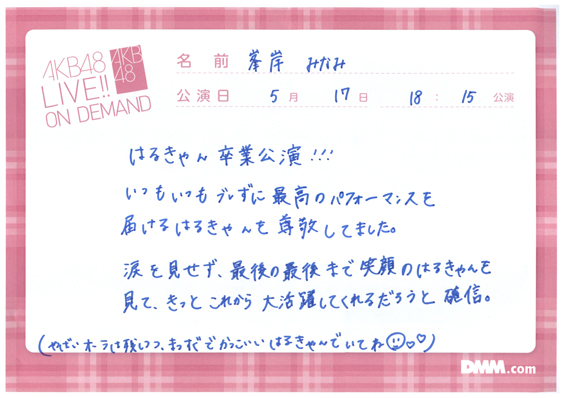 AKB48
LIVE!!
ON DEMAND
AKB
48
名前 峯岸 みなみ
公演日 5月 17日 18:15公演
はるきゃん卒業公演!!!
いつもいつもブレずに最高のパフォーマンスを
届けるはるきゃんを尊敬してました。
涙を見せず、最後の最後まで笑顔のはるきゃんを
見て、きっとこれから大活躍してくれるだろうと確信。
(やばいオーラは残しつつ、まっすぐでかっこいいはるきゃんでいてね)
DMM.com